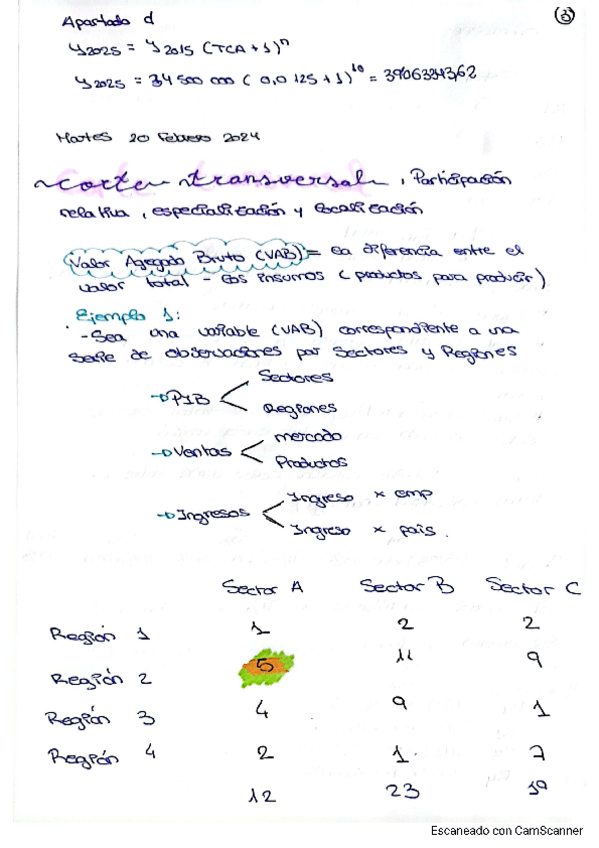 3
Apartado d
y2025 = y2015 (TCA + 1)^n
y2025 = 34 500 000 ( 0,0125 + 1)^10 = 39063343,62
Martes 20 Febrero 2024
corte transversal, Participación
relativa, especialización y localización
Valor Agregado Bruto (VAB) = la diferencia entre el
valor total - los insumos ( productos para producir)
Ejemplo 1:
- Sea una variable (VAB) correspondiente a una
serie de observaciones por sectores y Regiones
PIB
Sectores
Regiones
Ventas
mercado
Productos
Ingresos
Ingreso x emp
Ingreso x país.
Sector A Sector B Sector C
Región 1 1 2 2
Región 2 5 11 9
Región 3 4 9 1
Región 4 2 1 7
12 23 19
Escaneado con CamScanner